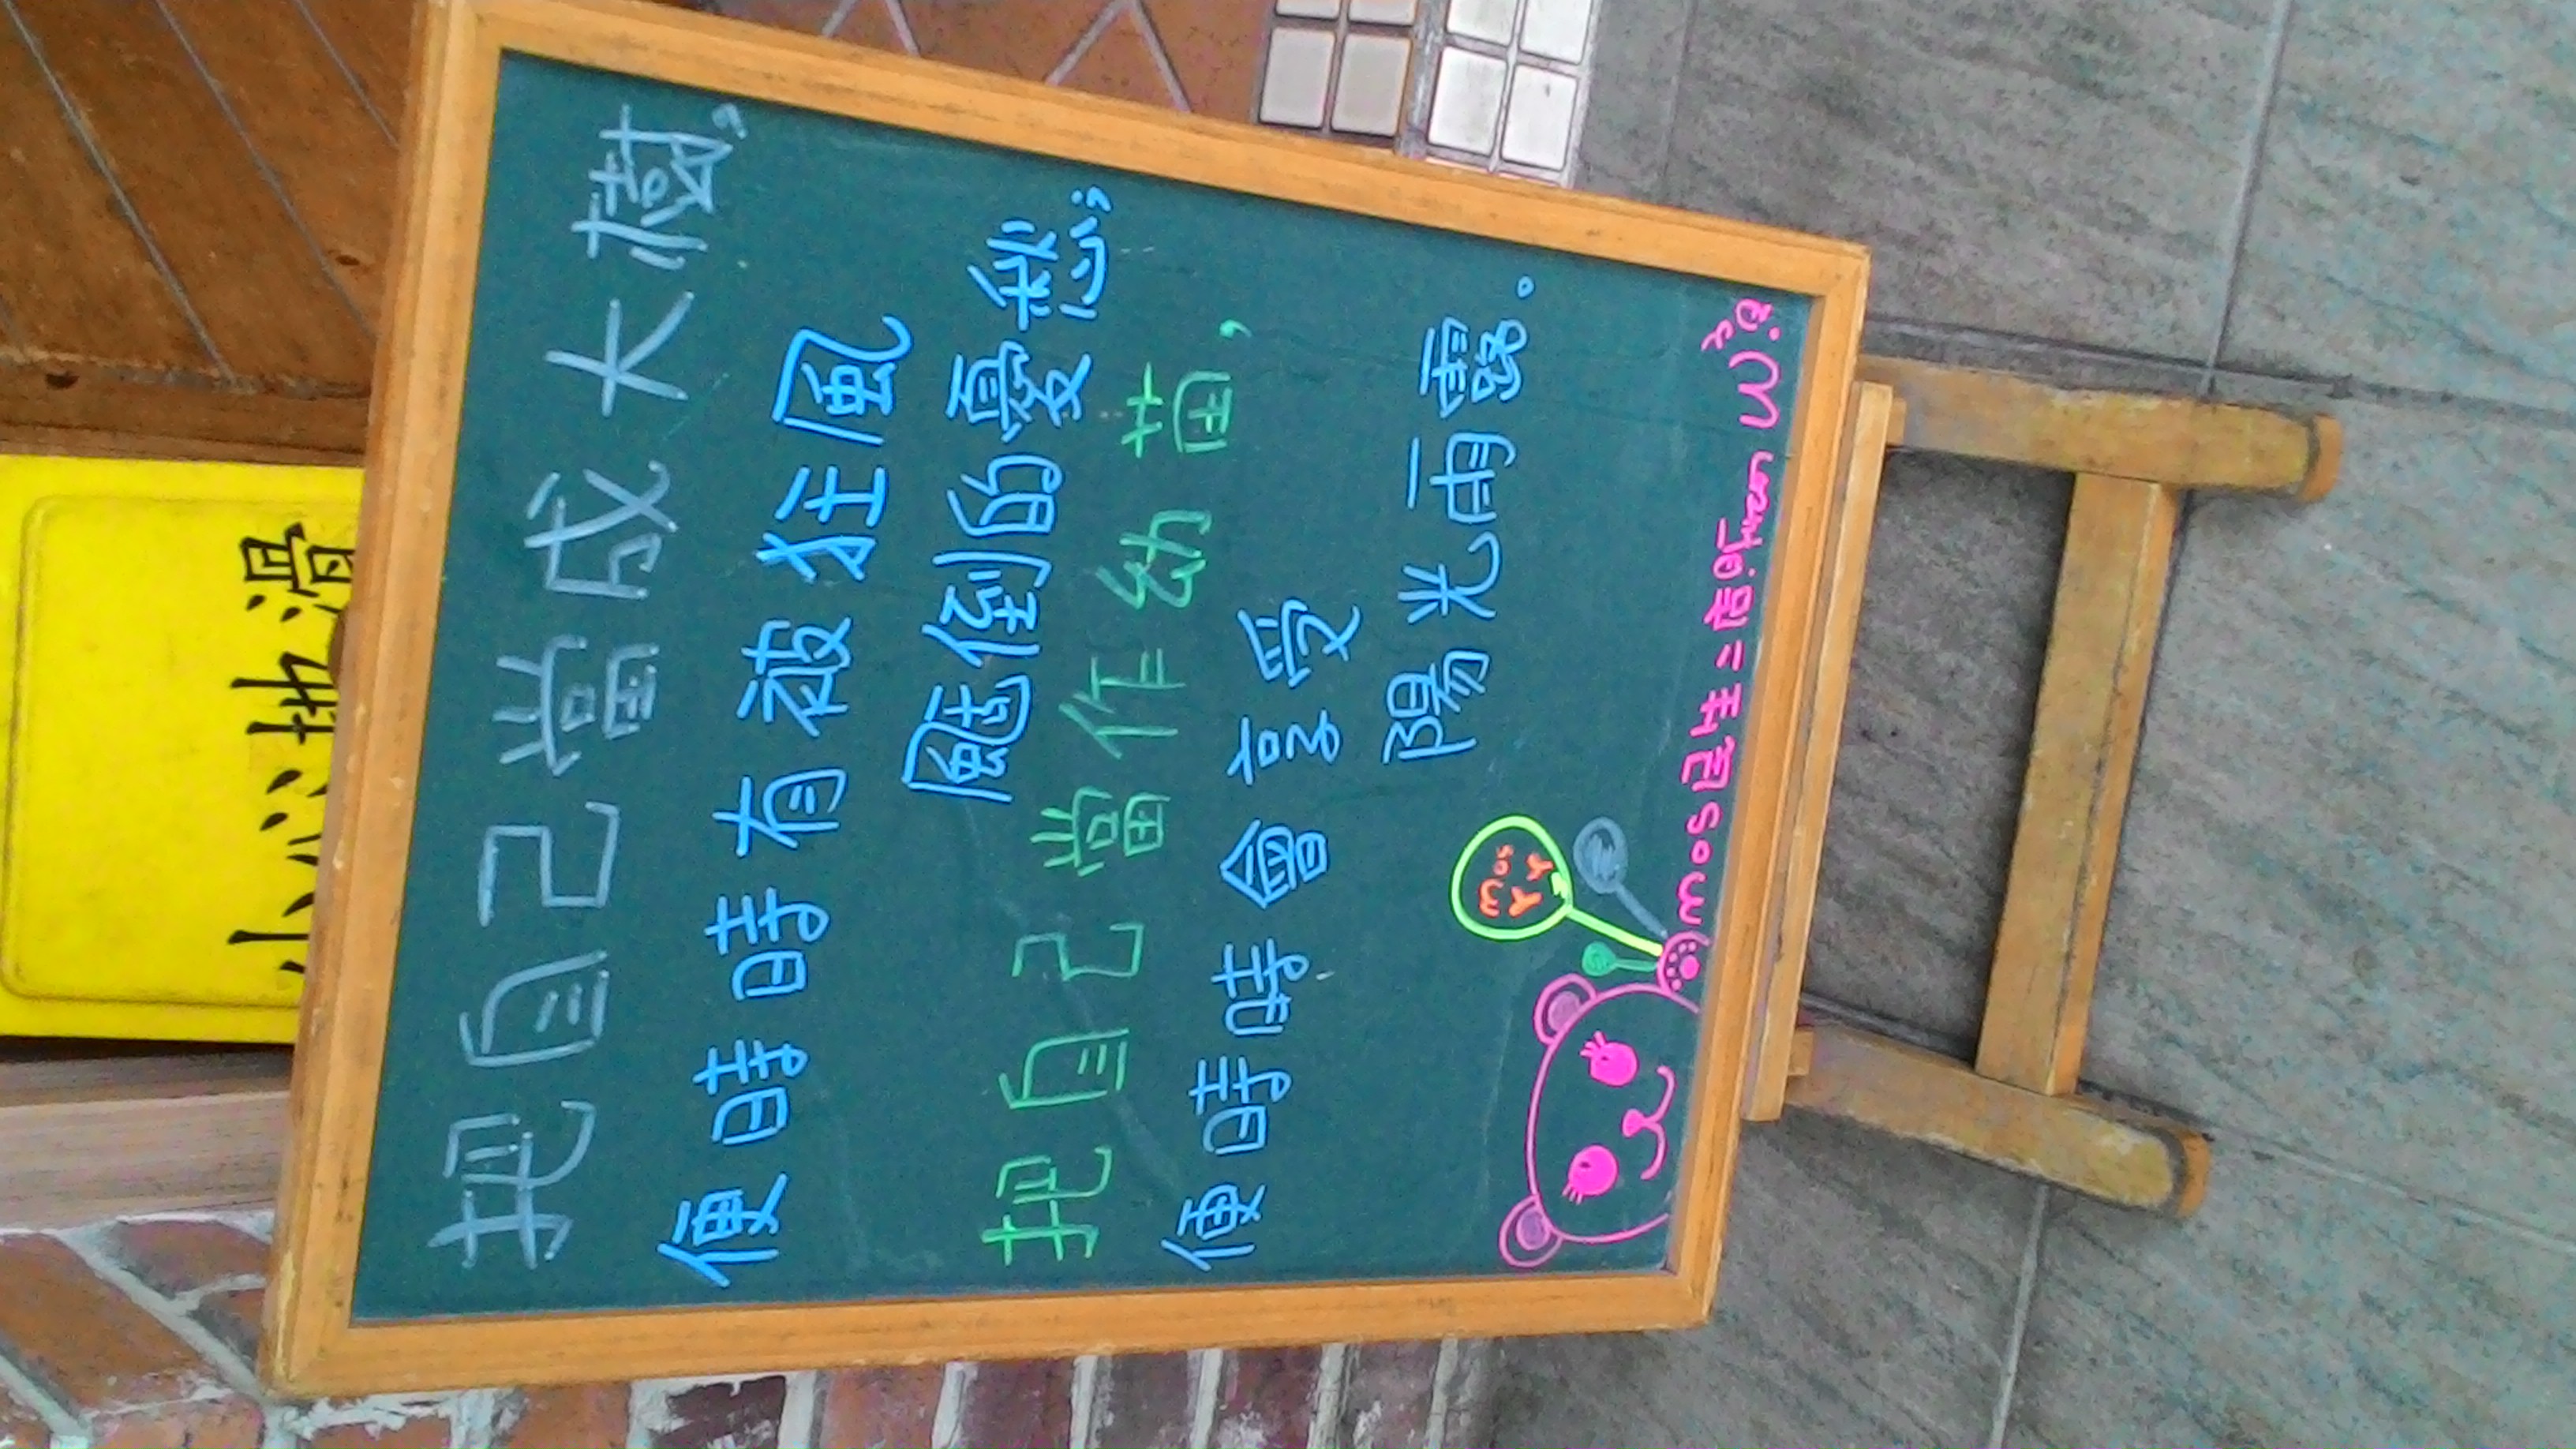 小心地滑
把自己當成大樹,
便時時有被狂風
颳倒的憂愁;
把自己當作幼苗,
便時時會享受
陽光雨露。
mos
mos民生二店 From W³